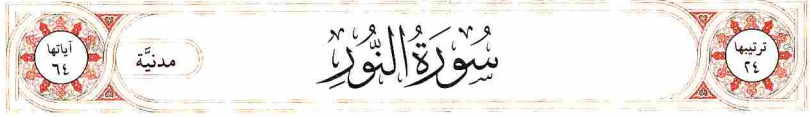 ترتيبها
٢٤
سُورَةُ النُّورِ
مدنيَّة
آياتها
٦٤